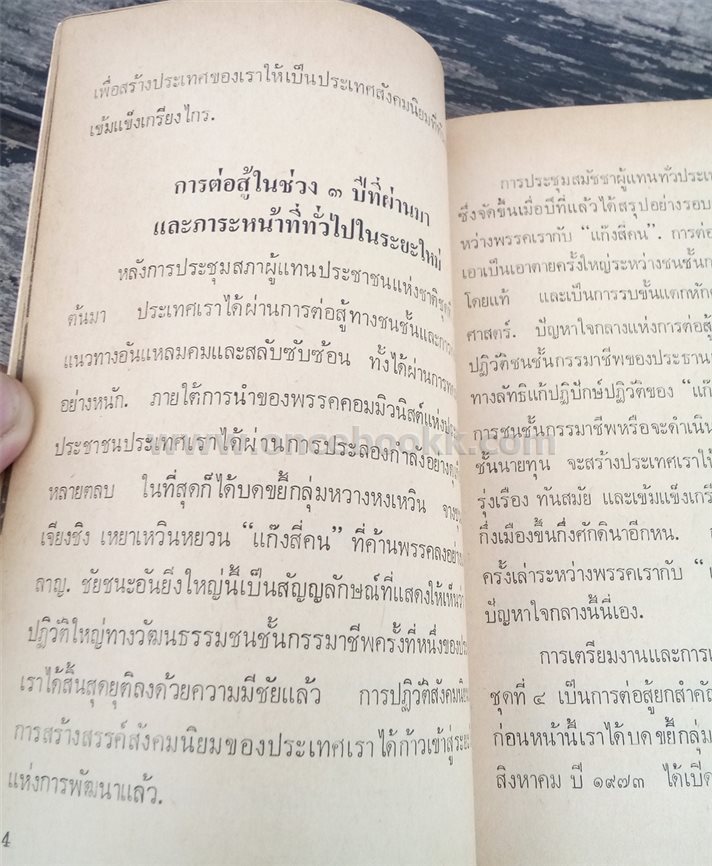 เพื่อสร้างประเทศของเราให้เป็นประเทศสังคมนิยมที่
เข้มแข็งเกรียงไกร.
การต่อสู้ในช่วง ๓ ปีที่ผ่านมา
และภาระหน้าที่ทั่วไปในระยะใหม่
หลังการประชุมสภาผู้แทนประชาชนแห่งชาติชุดที่
ต้นมา ประเทศเราได้ผ่านการต่อสู้ทางชนชั้นและการ
แนวทางอันแหลมคมและสลับซับซ้อน ทั้งได้ผ่านการ
อย่างหนัก. ภายใต้การนำของพรรคคอมมิวนิสต์แห่ง
ประชาชนประเทศเราได้ผ่านการประลองกำลังอย่าง
หลายตลบ ในที่สุดก็ได้บดขยี้กลุ่มหวางหงเหวิน
เจียงชิง เหยาเหวินหยวน “แก๊งสี่คน” ที่ค้านพรรคลงอย่าง
ลาญ. ชัยชนะอันยิ่งใหญ่นี้เป็นสัญญลักษณ์ที่แสดงให้เห็น
ปฏิวัติใหญ่ทางวัฒนธรรมชนชั้นกรรมาชีพครั้งที่หนึ่งของ
เราได้สิ้นสุดยุติลงด้วยความมีชัยแล้ว การปฏิวัติสังคม
การสร้างสรรค์สังคมนิยมของประเทศเราได้ก้าวเข้าสู่
แห่งการพัฒนาแล้ว.
4
การประชุมสมัชชาผู้แทนทั่วประเ
ซึ่งจัดขึ้นเมื่อปีที่แล้วได้สรุปอย่างรอบ
หว่างพรรคเรากับ “แก๊งสี่คน”. การต่อ
เอาเป็นเอาตายครั้งใหญ่ระหว่างชนชั้น
โดยแท้ และเป็นการรบขั้นแตกหัก
ศาสตร์. ปัญหาใจกลางแห่งการต่อสู้
ปฏิวัติชนชั้นกรรมาชีพของประธาน
ทางลัทธิแก้ปฏิปักษ์ปฏิวัติของ “แก๊
การชนชั้นกรรมาชีพหรือจะดำเนิน
ชั้นนายทุน จะสร้างประเทศเราให้
รุ่งเรือง ทันสมัย และเข้มแข็งเกรี
กึ่งเมืองขึ้นกึ่งศักดินาอีกหน.
ครั้งเล่าระหว่างพรรคเรากับ “
ปัญหาใจกลางนี้นี่เอง.
การเตรียมงานและการเ
ชุดที่ ๔ เป็นการต่อสู้ยกสำคัญ
ก่อนหน้านี้เราได้บดขยี้กลุ่ม
สิงหาคม ปี ๑๙๗๓ ได้เปิด